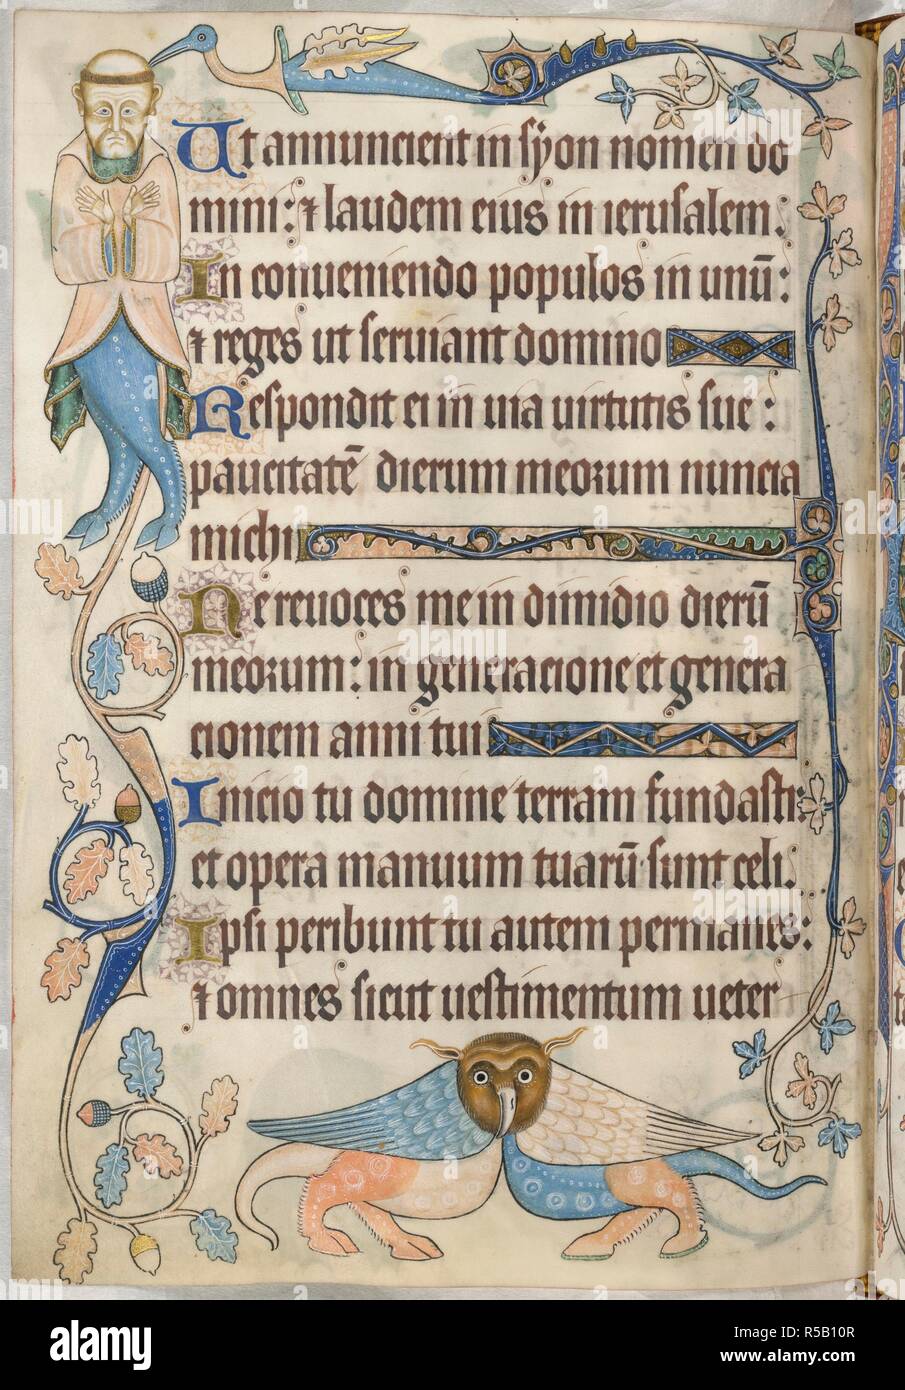 Ut annuncient in syon nomen do
mini: ⁊ laudem eius in ierusalem:
In conueniendo populos in unū:
⁊ reges ut seruiant domino
Respondit ei in uia uirtutis sue:
paucitatē dierum meorum nuncia
michi
Ne reuoces me in dimidio dierū
meorum: in generacione et genera
cionem anni tui
Inicio tu domine terram fundasti:
et opera manuum tuarū sunt celi.
Ipsi peribunt tu autem permanes:
⁊ omnes sicut uestimentum ueter
alamy
Image ID: R5B10R
www.alamy.com